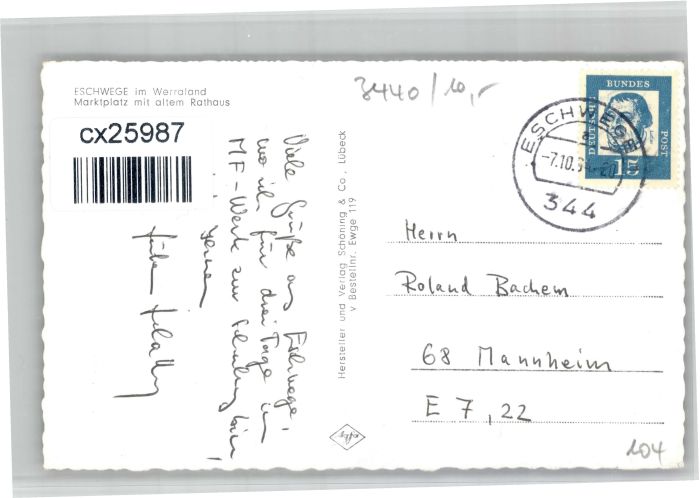 ESCHWEGE im Werraland
Marktplatz mit altem Rathaus
cx25987
3440/10,-
DEUTSCHE BUNDESPOST
15
ESCHWEGE
-7.10.
344
Viele Grüße aus Eschwege,
wo ich für drei Tage im
MF-Werk zur Schulung bin!
Hersteller und Verlag Schöning & Co., Lübeck
v Bestellnr. Ewge 119
Herrn
Roland Bachem
68 Mannheim
E 7, 22
104